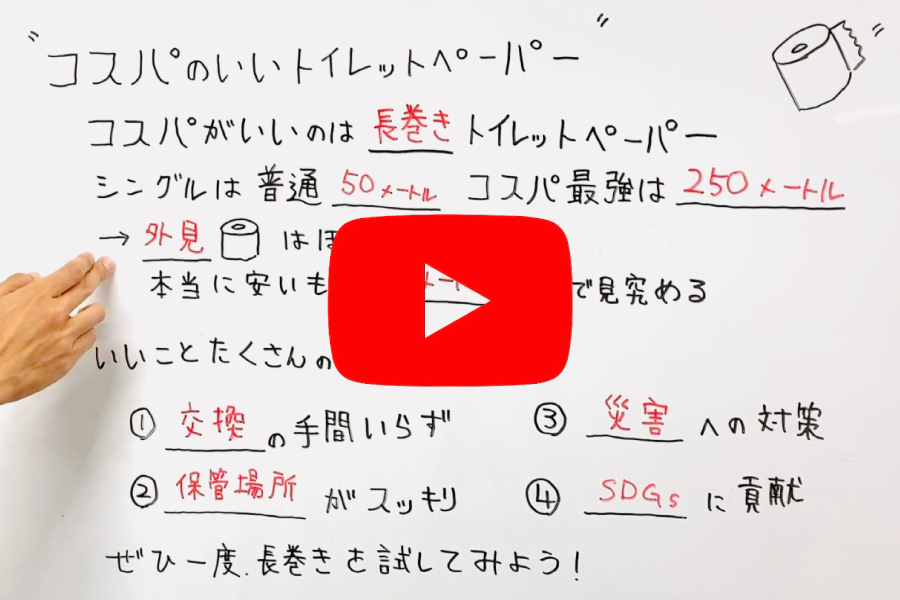 "コスパのいいトイレットペーパー"
コスパがいいのは 長巻き トイレットペーパー
シングルは 普通 50メートル コスパ最強は 250メートル
→ 外見 はほ
本当に安いも で見究める
いいことたくさんの
① 交換 の手間いらず
② 保管場所 がスッキリ
③ 災害 への対策
④ SDGs に貢献
ぜひ一度、長巻きを試してみよう!